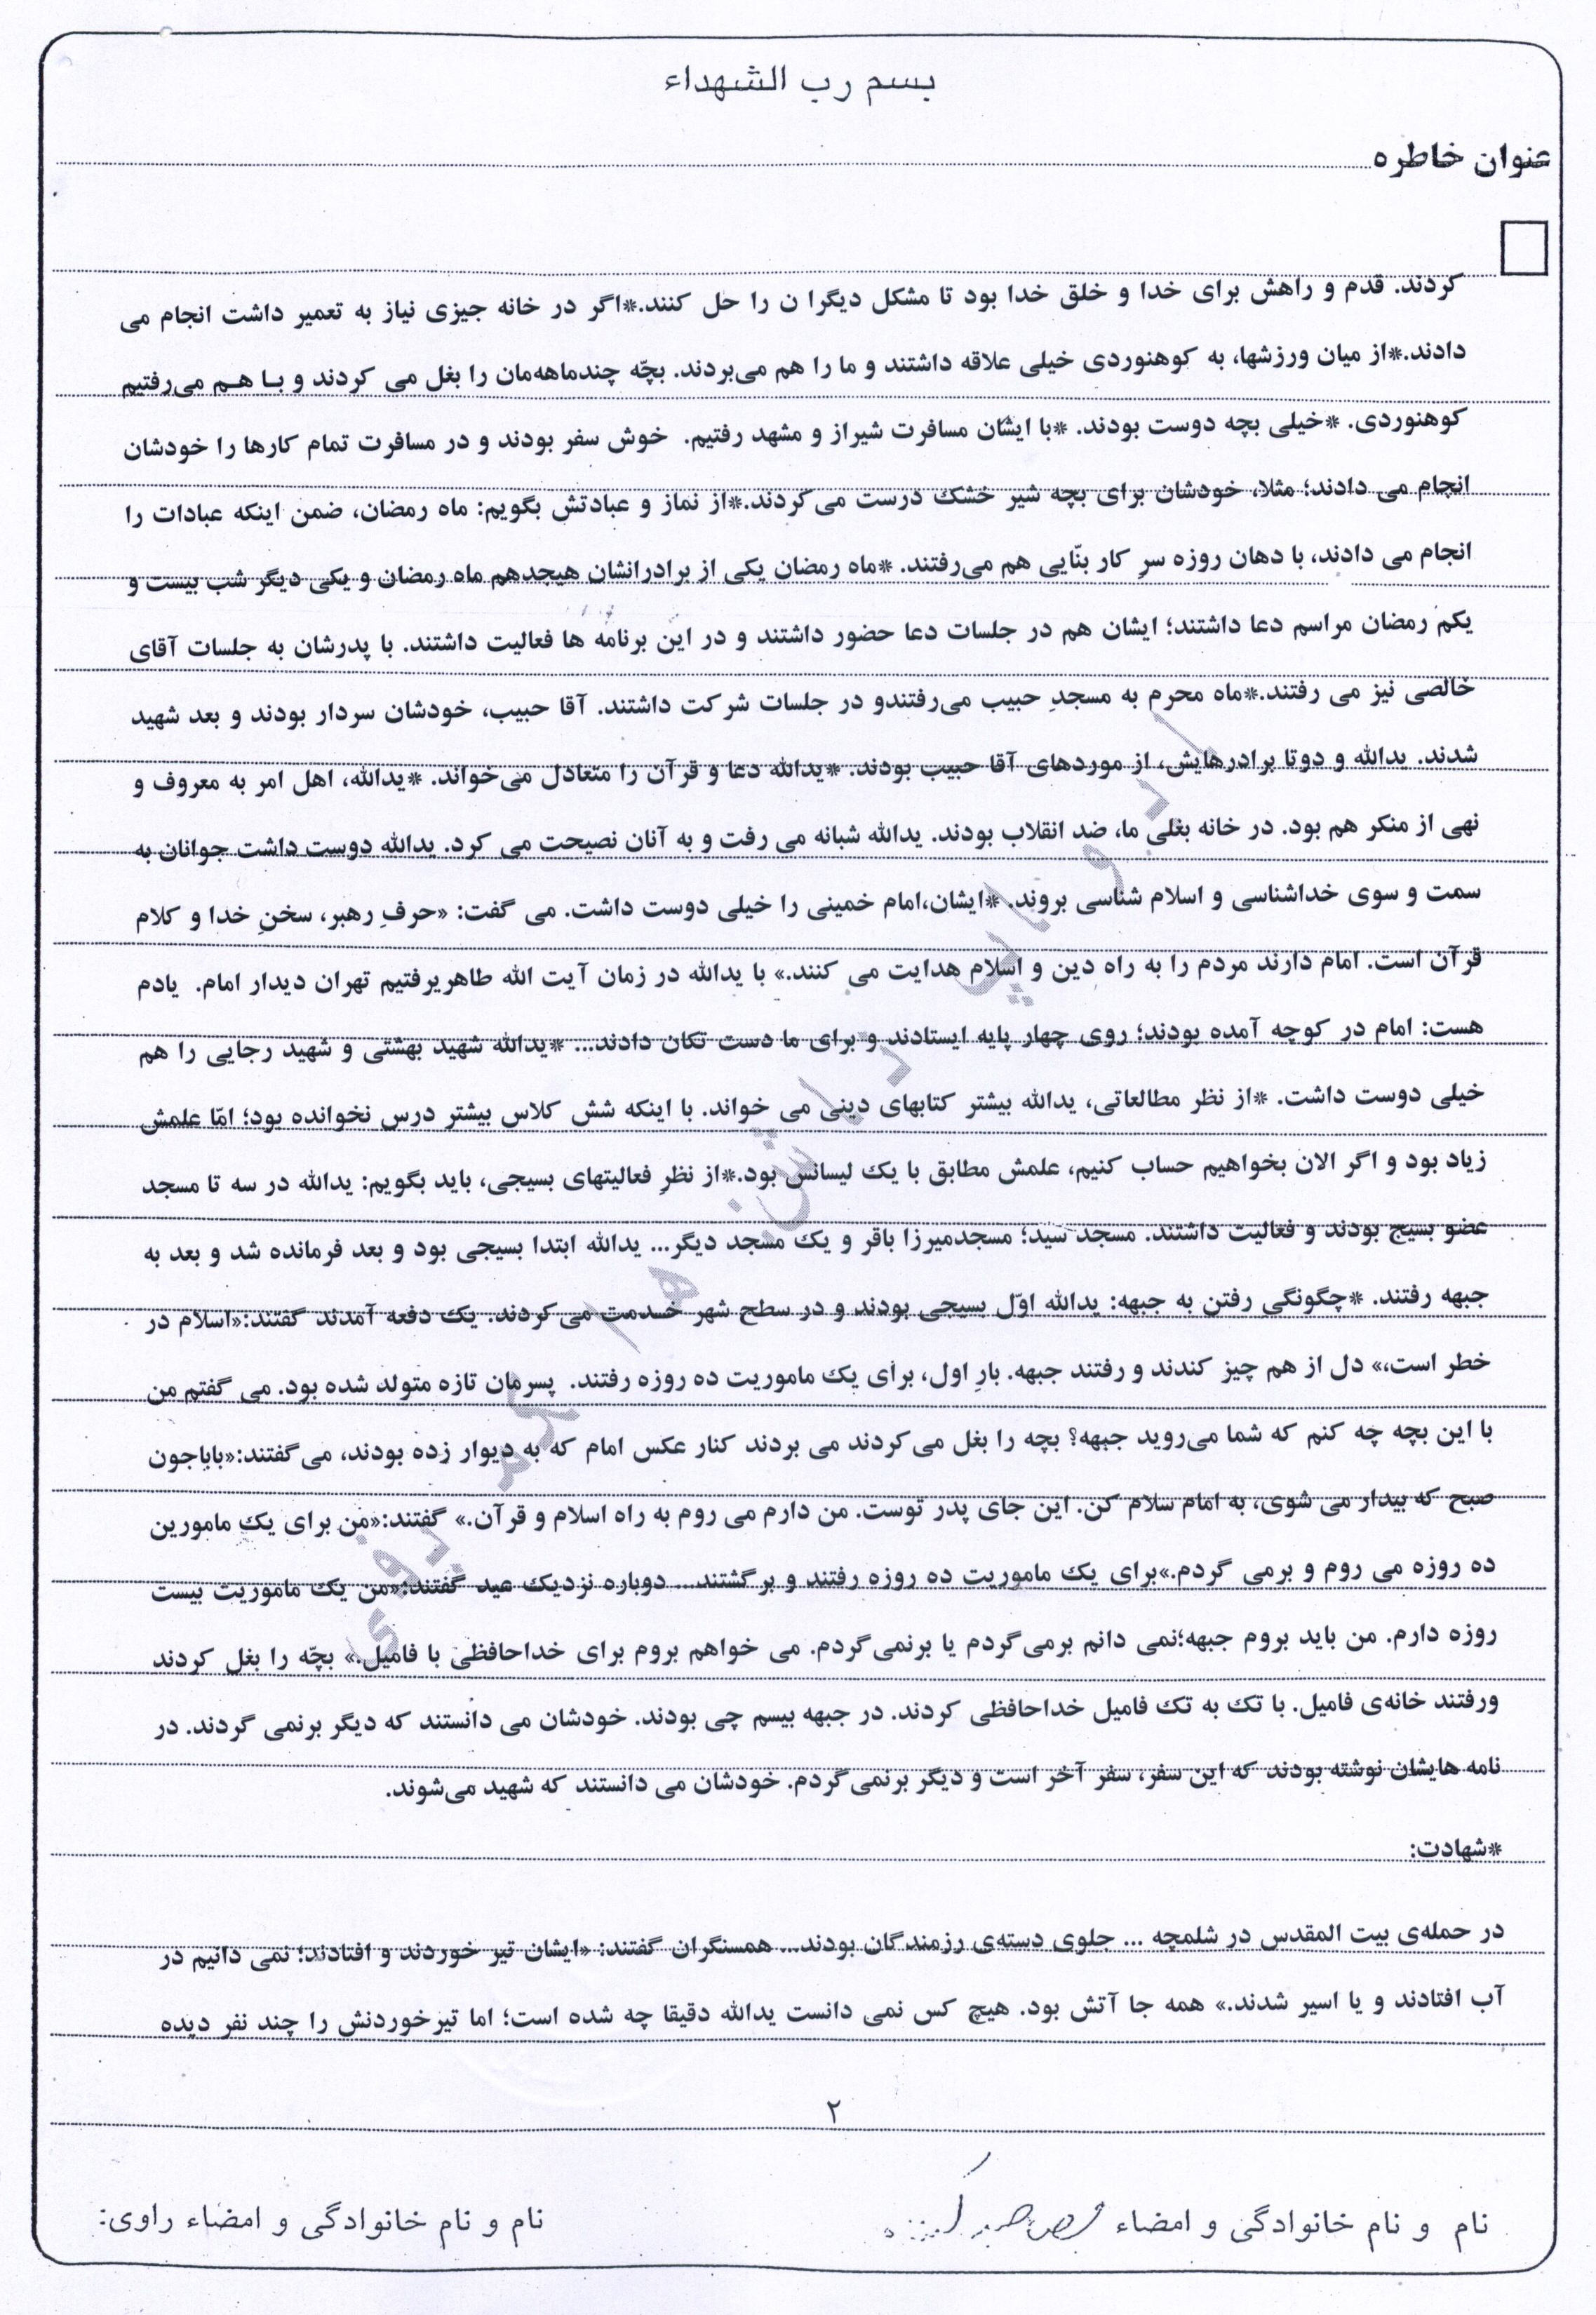 بسم رب الشهداء
عنوان خاطره
کردند. قدم و راهش برای خدا و خلق خدا بود تا مشکل دیگرا ن را حل کنند.*اگر در خانه جیزی نیاز به تعمیر داشت انجام می
دادند.*از میان ورزشها، به کوهنوردی خیلی علاقه داشتند و ما را هم می‌بردند. بچّه چندماهه‌مان را بغل می کردند و بـا هـم می‌رفتیم
کوهنوردی. *خیلی بچه دوست بودند. *با ایشان مسافرت شیراز و مشهد رفتیم. خوش سفر بودند و در مسافرت تمام کارها را خودشان
انجام می دادند؛ مثلا، خودشان برای بچه شیر خشک درست می‌کردند.*از نماز و عبادتش بگویم: ماه رمضان، ضمن اینکه عبادات را
انجام می دادند، با دهان روزه سرِ کار بنّایی هم می‌رفتند. *ماه رمضان یکی از برادرانشان هیجدهم ماه رمضان و یکی دیگر شب بیست و
یکم رمضان مراسم دعا داشتند؛ ایشان هم در جلسات دعا حضور داشتند و در این برنامه ها فعالیت داشتند. با پدرشان به جلسات آقای
خالصی نیز می رفتند.*ماه محرم به مسجدِ حبیب می‌رفتندو در جلسات شرکت داشتند. آقا حبیب، خودشان سردار بودند و بعد شهید
شدند. یدالله و دوتا برادرهایش، از موردهای آقا حبیب بودند. *یدالله دعا و قرآن را متعادل می‌خواند. *یدالله، اهل امر به معروف و
نهی از منکر هم بود. در خانه بغلی ما، ضد انقلاب بودند. یدالله شبانه می رفت و به آنان نصیحت می کرد. یدالله دوست داشت جوانان به
سمت و سوی خداشناسی و اسلام شناسی بروند. *ایشان،امام خمینی را خیلی دوست داشت. می گفت: «حرفِ رهبر، سخنِ خدا و کلام
قرآن است. امام دارند مردم را به راه دین و اسلام هدایت می کنند.» با یدالله در زمان آیت الله طاهریرفتیم تهران دیدار امام. یادم
هست: امام در کوچه آمده بودند؛ روی چهار پایه ایستادند و برای ما دست تکان دادند... *یدالله شهید بهشتی و شهید رجایی را هم
خیلی دوست داشت. *از نظر مطالعاتی، یدالله بیشتر کتابهای دینی می خواند. با اینکه شش کلاس بیشتر درس نخوانده بود؛ امّا علمش
زیاد بود و اگر الان بخواهیم حساب کنیم، علمش مطابق با یک لیسانس بود.*از نظرِ فعالیتهای بسیجی، باید بگویم: یدالله در سه تا مسجد
عضو بسیج بودند و فعالیت داشتند. مسجد سید؛ مسجدمیرزا باقر و یک مسجد دیگر... یدالله ابتدا بسیجی بود و بعد فرمانده شد و بعد به
جبهه رفتند. *چگونگیِ رفتن به جبهه: یدالله اوّل بسیجی بودند و در سطح شهر خـدمت می کردند. یک دفعه آمدند گفتند:«اسلام در
خطر است،» دل از هم چیز کندند و رفتند جبهه. بارِ اول، برای یک ماموریت ده روزه رفتند. پسرمان تازه متولد شده بود. می گفتم من
با این بچه چه کنم که شما می‌روید جبهه؟ بچه را بغل می‌کردند می بردند کنار عکس امام که به دیوار زده بودند، می‌گفتند:«باباجون
صبح که بیدار می شوی، به امام سلام کن. این جای پدر توست. من دارم می روم به راه اسلام و قرآن.» گفتند:«من برای یک مامورین
ده روزه می روم و برمی گردم.»برای یک ماموریت ده روزه رفتند و برگشتند... دوباره نزدیک عید گفتند:«من یک ماموریت بیست
روزه دارم. من باید بروم جبهه؛نمی دانم برمی‌گردم یا برنمی‌گردم. می خواهم بروم برای خداحافظی با فامیل.» بچّه را بغل کردند
ورفتند خانه‌ی فامیل. با تک به تک فامیل خداحافظی کردند. در جبهه بیسم چی بودند. خودشان می دانستند که دیگر برنمی گردند. در
نامه هایشان نوشته بودند که این سفر، سفر آخر است و دیگر برنمی‌گردم. خودشان می دانستند که شهید می‌شوند.
*شهادت:
در حمله‌ی بیت المقدس در شلمچه ... جلوی دسته‌ی رزمندگان بودند... همسنگران گفتند: «ایشان تیر خوردند و افتادند؛ نمی دانیم در
آب افتادند و یا اسیر شدند.» همه جا آتش بود. هیچ کس نمی دانست یدالله دقیقا چه شده است؛ اما تیرخوردنش را چند نفر دیده
۲
نام و نام خانوادگی و امضاء
نام و نام خانوادگی و امضاء راوی: